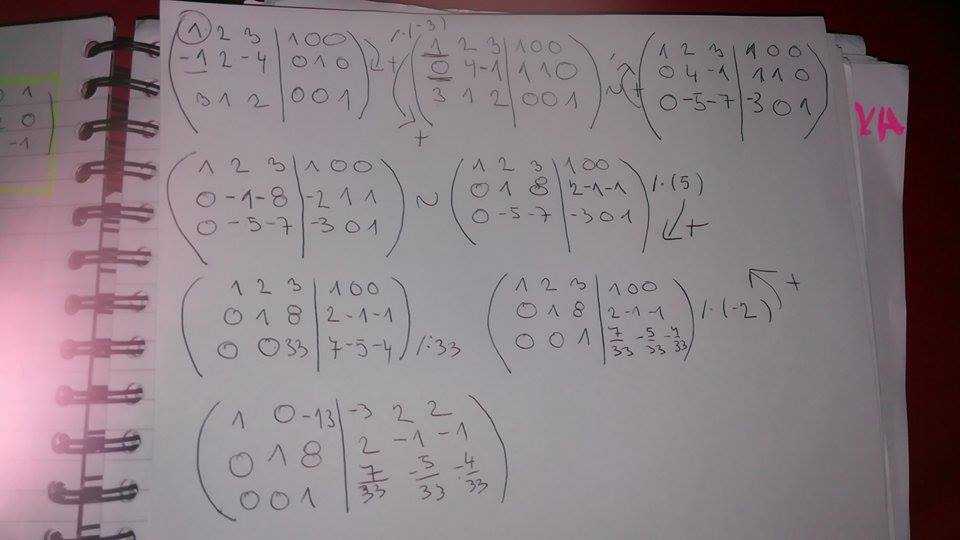 1 2 3 | 1 0 0
-1 2 -4 | 0 1 0
3 1 2 | 0 0 1
+
/·(-3)
1 2 3 | 1 0 0
0 4 -1 | 1 1 0
3 1 2 | 0 0 1
+
~
+
1 2 3 | 1 0 0
0 4 -1 | 1 1 0
0 -5 -7 | -3 0 1
1 2 3 | 1 0 0
0 -1 -8 | -2 1 1
0 -5 -7 | -3 0 1
~
1 2 3 | 1 0 0
0 1 8 | 2 -1 -1
0 -5 -7 | -3 0 1
/·(5)
+
1 2 3 | 1 0 0
0 1 8 | 2 -1 -1
0 0 33 | 7 -5 -4
/:33
1 2 3 | 1 0 0
0 1 8 | 2 -1 -1
0 0 1 | 7/33 -5/33 -4/33
/·(-2)
+
1 0 -13 | -3 2 2
0 1 8 | 2 -1 -1
0 0 1 | 7/33 -5/33 -4/33
0 1
0
-1